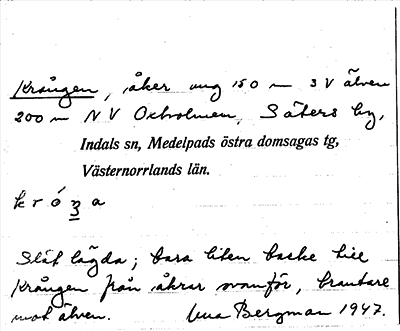 Krången, åker ung 150 m SV älven
200 m NV Oxholmen, Säters by,
Indals sn, Medelpads östra domsagas tg,
Västernorrlands län.
k r ó ʒ a
Slät lägda; bara liten backe till
Krången från åkrar ovanför, brantare
mot älven. Una Bergman 1947.